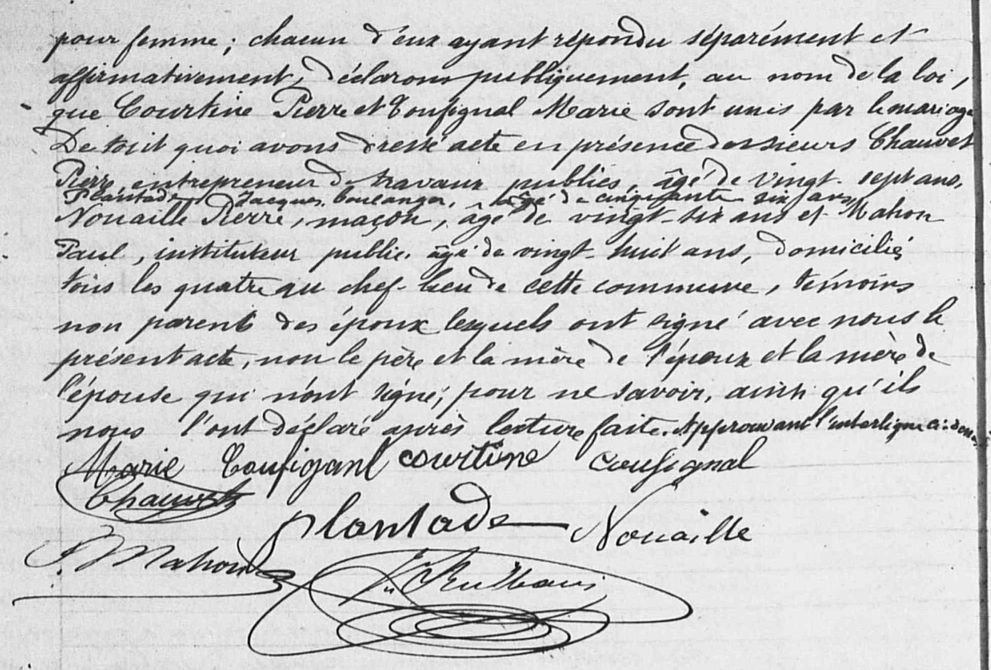 pour femme; chacun d'eux ayant répondu séparément et
affirmativement, déclarons publiquement, au nom de la loi,
que Courtine Pierre et Confignal Marie sont unis par le mariage
De tout quoi avons dressé acte en présence des sieurs Chauvet
Pierre, entrepreneur de travaux publics, âgé de vingt-sept ans,
Plantade Jacques, boulanger, âgé de cinquante six ans
Nouaille Pierre, maçon, âgé de vingt-six ans et Mahon
Paul, instituteur public, âgé de vingt-huit ans, domiciliés
tous les quatre au chef-lieu de cette commune, témoins
non parents des époux lesquels ont signé avec nous le
présent acte, non le père et la mère de l'époux et la mère de
l'épouse qui n'ont signé, pour ne savoir, ainsi qu'ils
nous l'ont déclaré après lecture faite. Approuvant l'interligne ci-dessus
Marie Configanl courtine confignal
Chauvet
plantade Nouaille
P Mahon